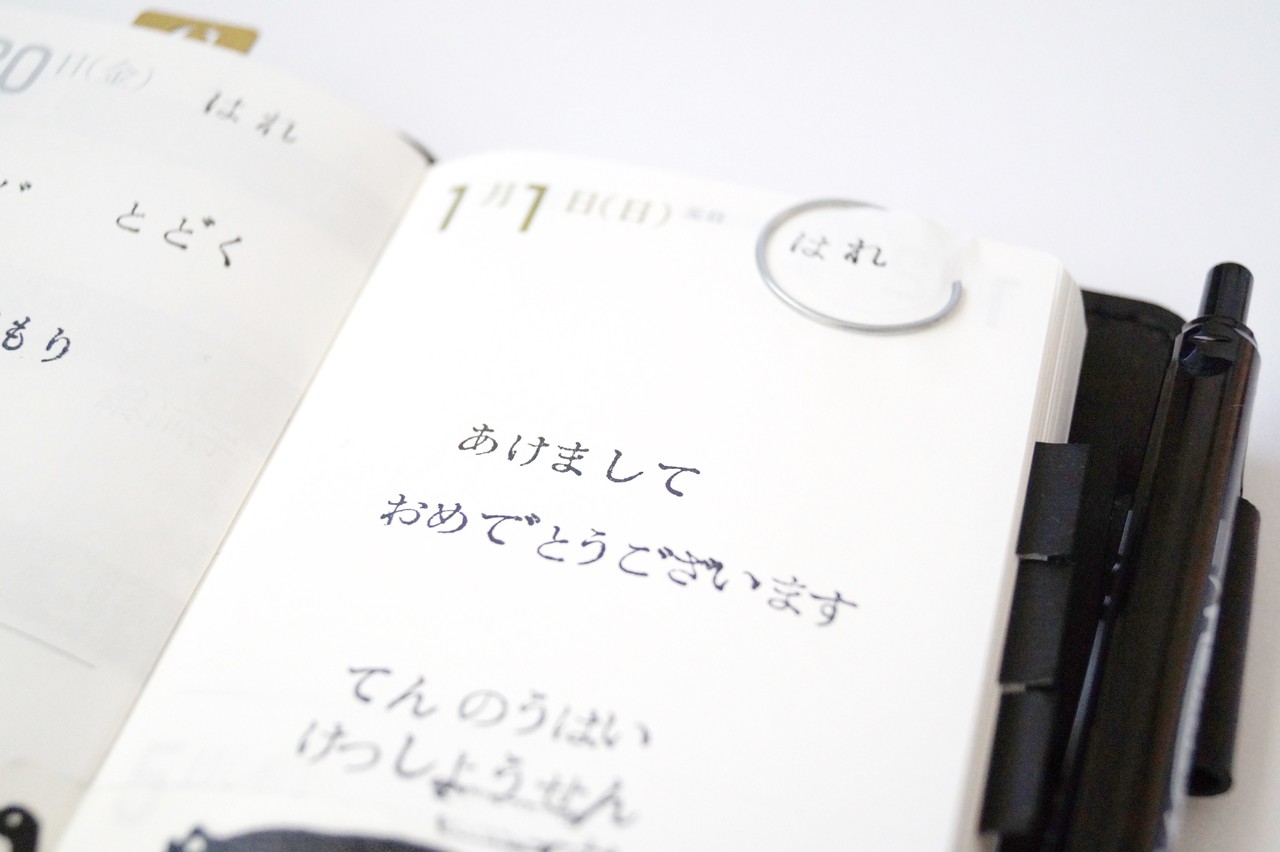 20日(金)
はれ
とどく
もり
1月1日(日) 元日
はれ
あけまして
おめでとうございます
てんのうはい
けっしょうせん